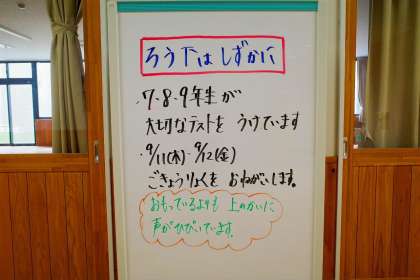 ろう下はしずかに
・7・8・9年生が
大切なテストを うけています
・9/11(木)・9/12(金)
ごきょうりょくを おねがいします。
おもっているよりも 上のかいに
声がひびいています。